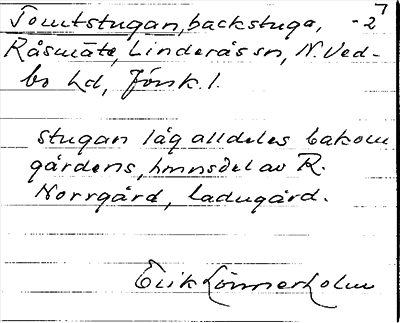 Tomtstugan, backstuga, -27
Råsmäte, Linderås sn, N. Ved-
bo hd, Jönk. l.
stugan låg alldeles bakom
gårdens, hmnsdel av R.
Norrgård, ladugård.
Erik Lönnerholm